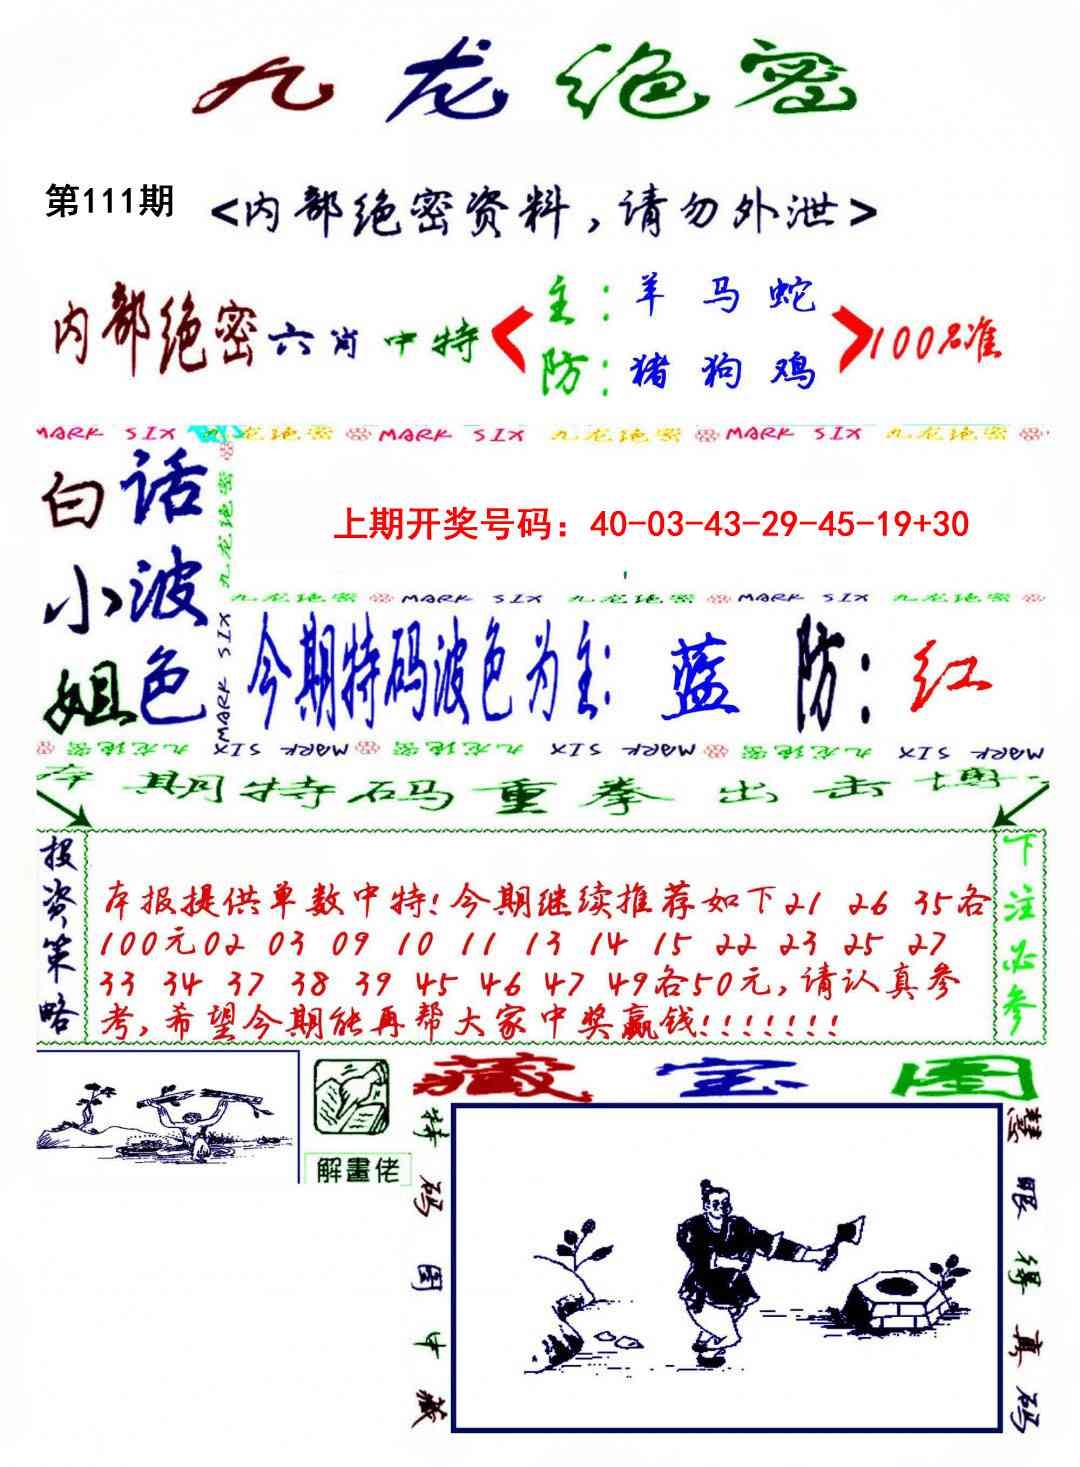 九龙绝密
第111期
<内部绝密资料,请勿外泄>
内部绝密六肖中特
主：羊 马 蛇
防：猪 狗 鸡
100%准
MARK SIX 九龙绝密 MARK SIX 九龙绝密 MARK SIX 九龙绝密
白小姐
话波色
九龙绝密
MARK SIX
上期开奖号码：40-03-43-29-45-19+30
九龙绝密 MARK SIX 九龙绝密 MARK SIX 九龙绝密
今期特码波色为主：蓝 防：红
九龙绝密 MARK SIX 九龙绝密 MARK SIX 九龙绝密 MARK SIX
本期特码重拳出击博
投资策略
本报提供单数中特!今期继续推荐如下21 26 35各
100元02 03 09 10 11 13 14 15 22 23 25 27
33 34 37 38 39 45 46 47 49各50元,请认真参
考,希望今期能再帮大家中奖赢钱!!!!!!!
下注必参
解畫佬
藏宝图
特码图中藏
慧眼得真码